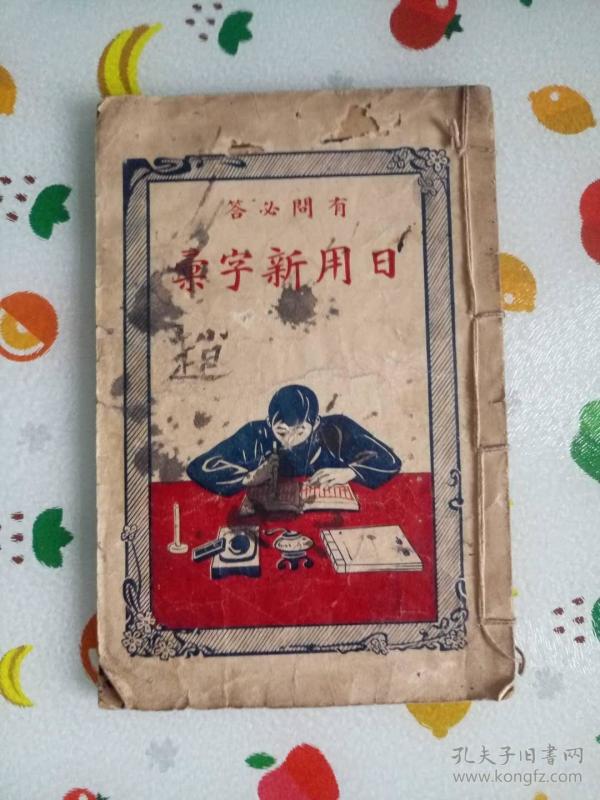 有問必答
日用新字彙
趙
孔夫子旧書网
www.kongfz.com